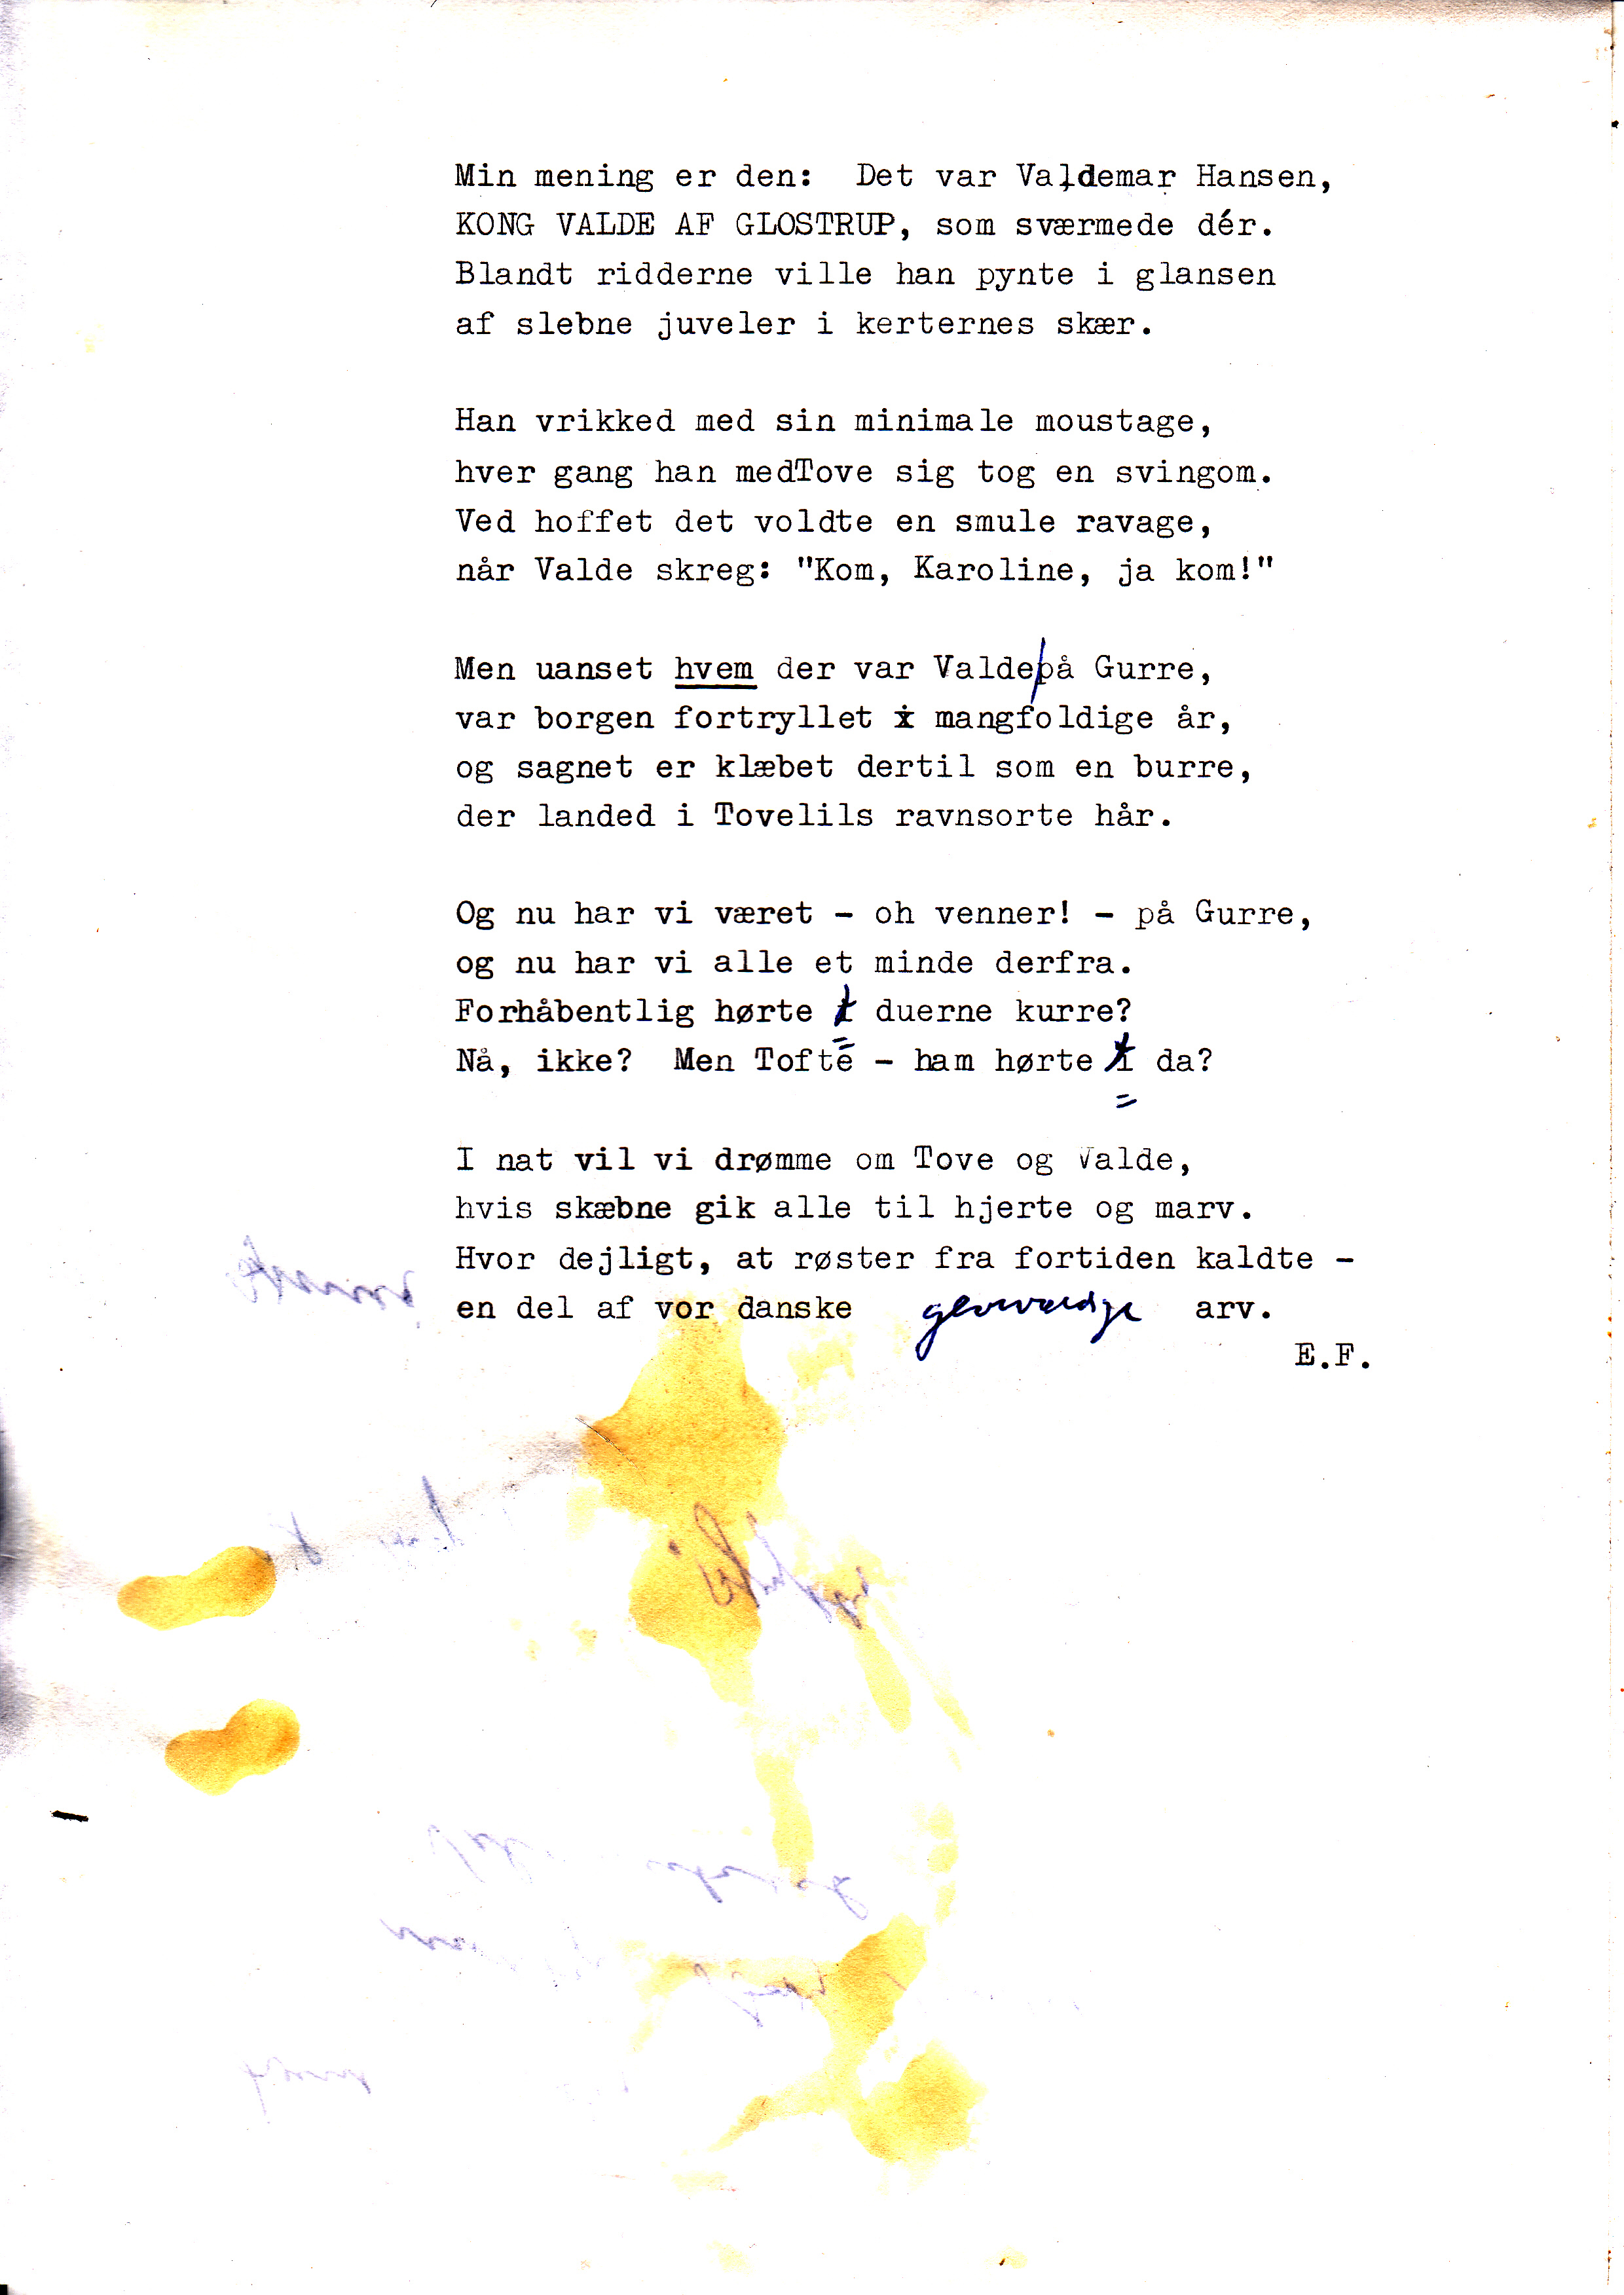 Min mening er den: Det var Valdemar Hansen,
KONG VALDE AF GLOSTRUP, som sværmede dér.
Blandt ridderne ville han pynte i glansen
af slebne juveler i kerternes skær.
Han vrikked med sin minimale moustage,
hver gang han medTove sig tog en svingom.
Ved hoffet det voldte en smule ravage,
når Valde skreg: "Kom, Karoline, ja kom!"
Men uanset hvem der var Valde på Gurre,
var borgen fortryllet i mangfoldige år,
og sagnet er klæbet dertil som en burre,
der landed i Tovelils ravnsorte hår.
Og nu har vi været - oh venner! - på Gurre,
og nu har vi alle et minde derfra.
Forhåbentlig hørte I duerne kurre?
Nå, ikke? Men Tofte - ham hørte I da?
I nat vil vi drømme om Tove og Valde,
hvis skæbne gik alle til hjerte og marv.
Hvor dejligt, at røster fra fortiden kaldte -
en del af vor danske arv.
E.F.